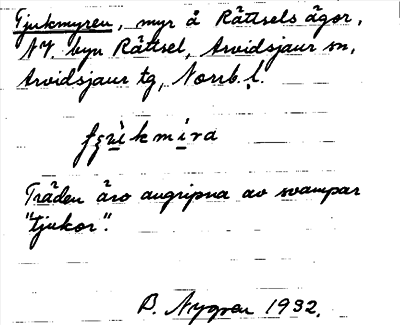 Tjukmyren, myr å Rättsels ägor,
NV. byn Rättsel, Arvidsjaur sn,
Arvidsjaur tg, Norrb. l.
Träden äro angripna av svampar
"tjukor".
B. Nygren 1932.